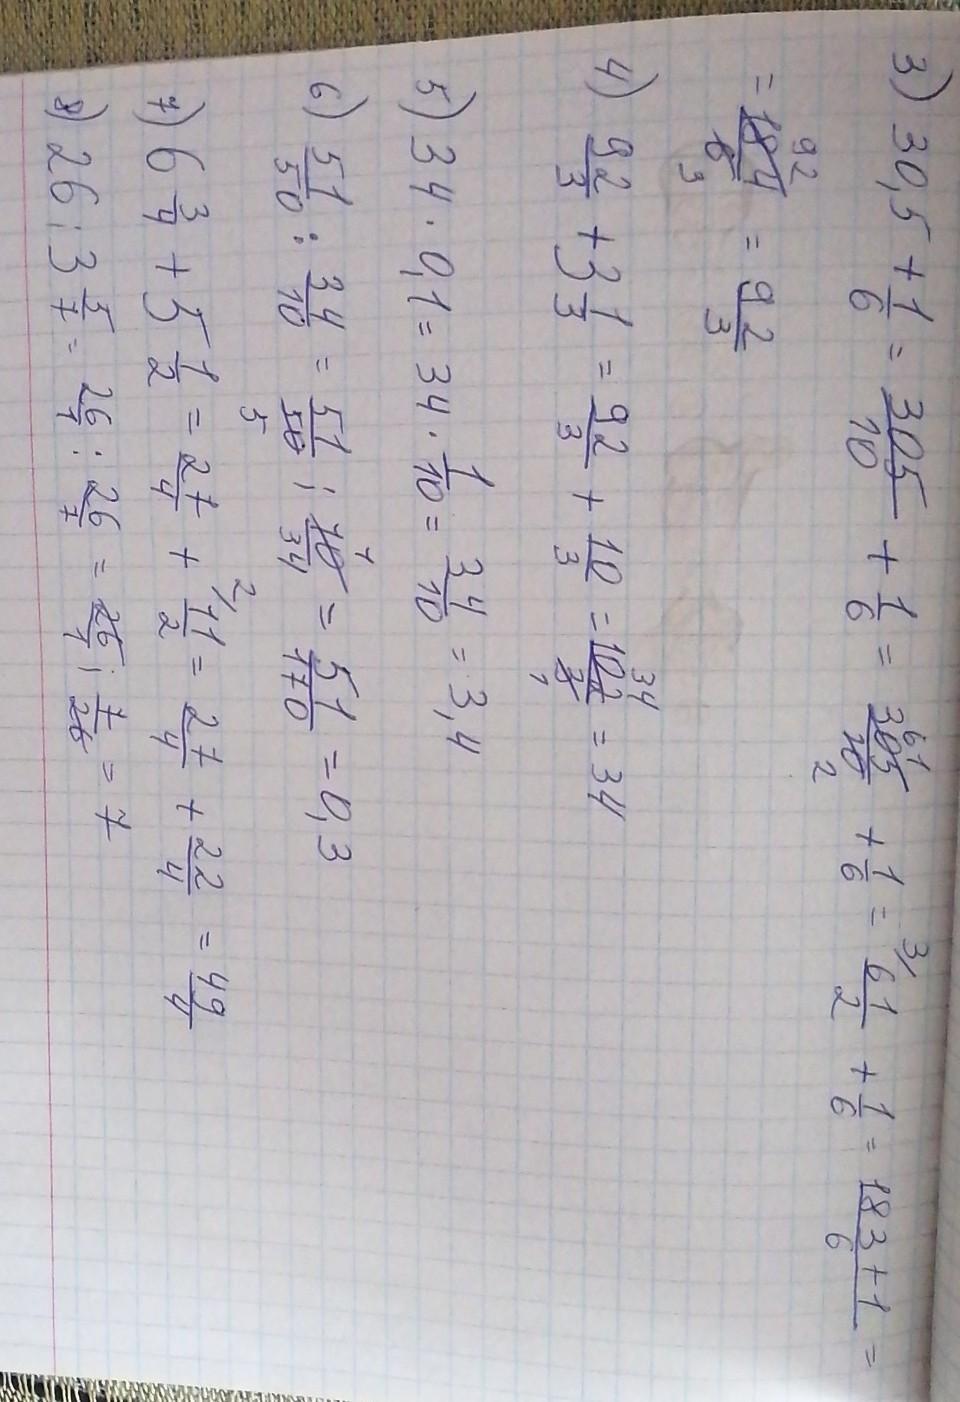 3) 30,5 + 1/6 = 305/10 + 1/6 = 305/10 61 2 + 1/6 = 3/ 61/2 + 1/6 = 183+1/6 =
= 184/6 92 3 = 92/3
4) 92/3 + 3 1/3 = 92/3 + 10/3 = 102/3 34 1 = 34
5) 34 · 0,1 = 34 · 1/10 = 34/10 = 3,4
6) 51/50 : 34/10 = 51/50 5 · 10/34 1 = 51/170 = 0,3
7) 6 3/4 + 5 1/2 = 27/4 + 2/ 11/2 = 27/4 + 22/4 = 49/4
8) 26 : 3 5/7 = 26/1 : 26/7 = 26/1 · 7/26 = 7